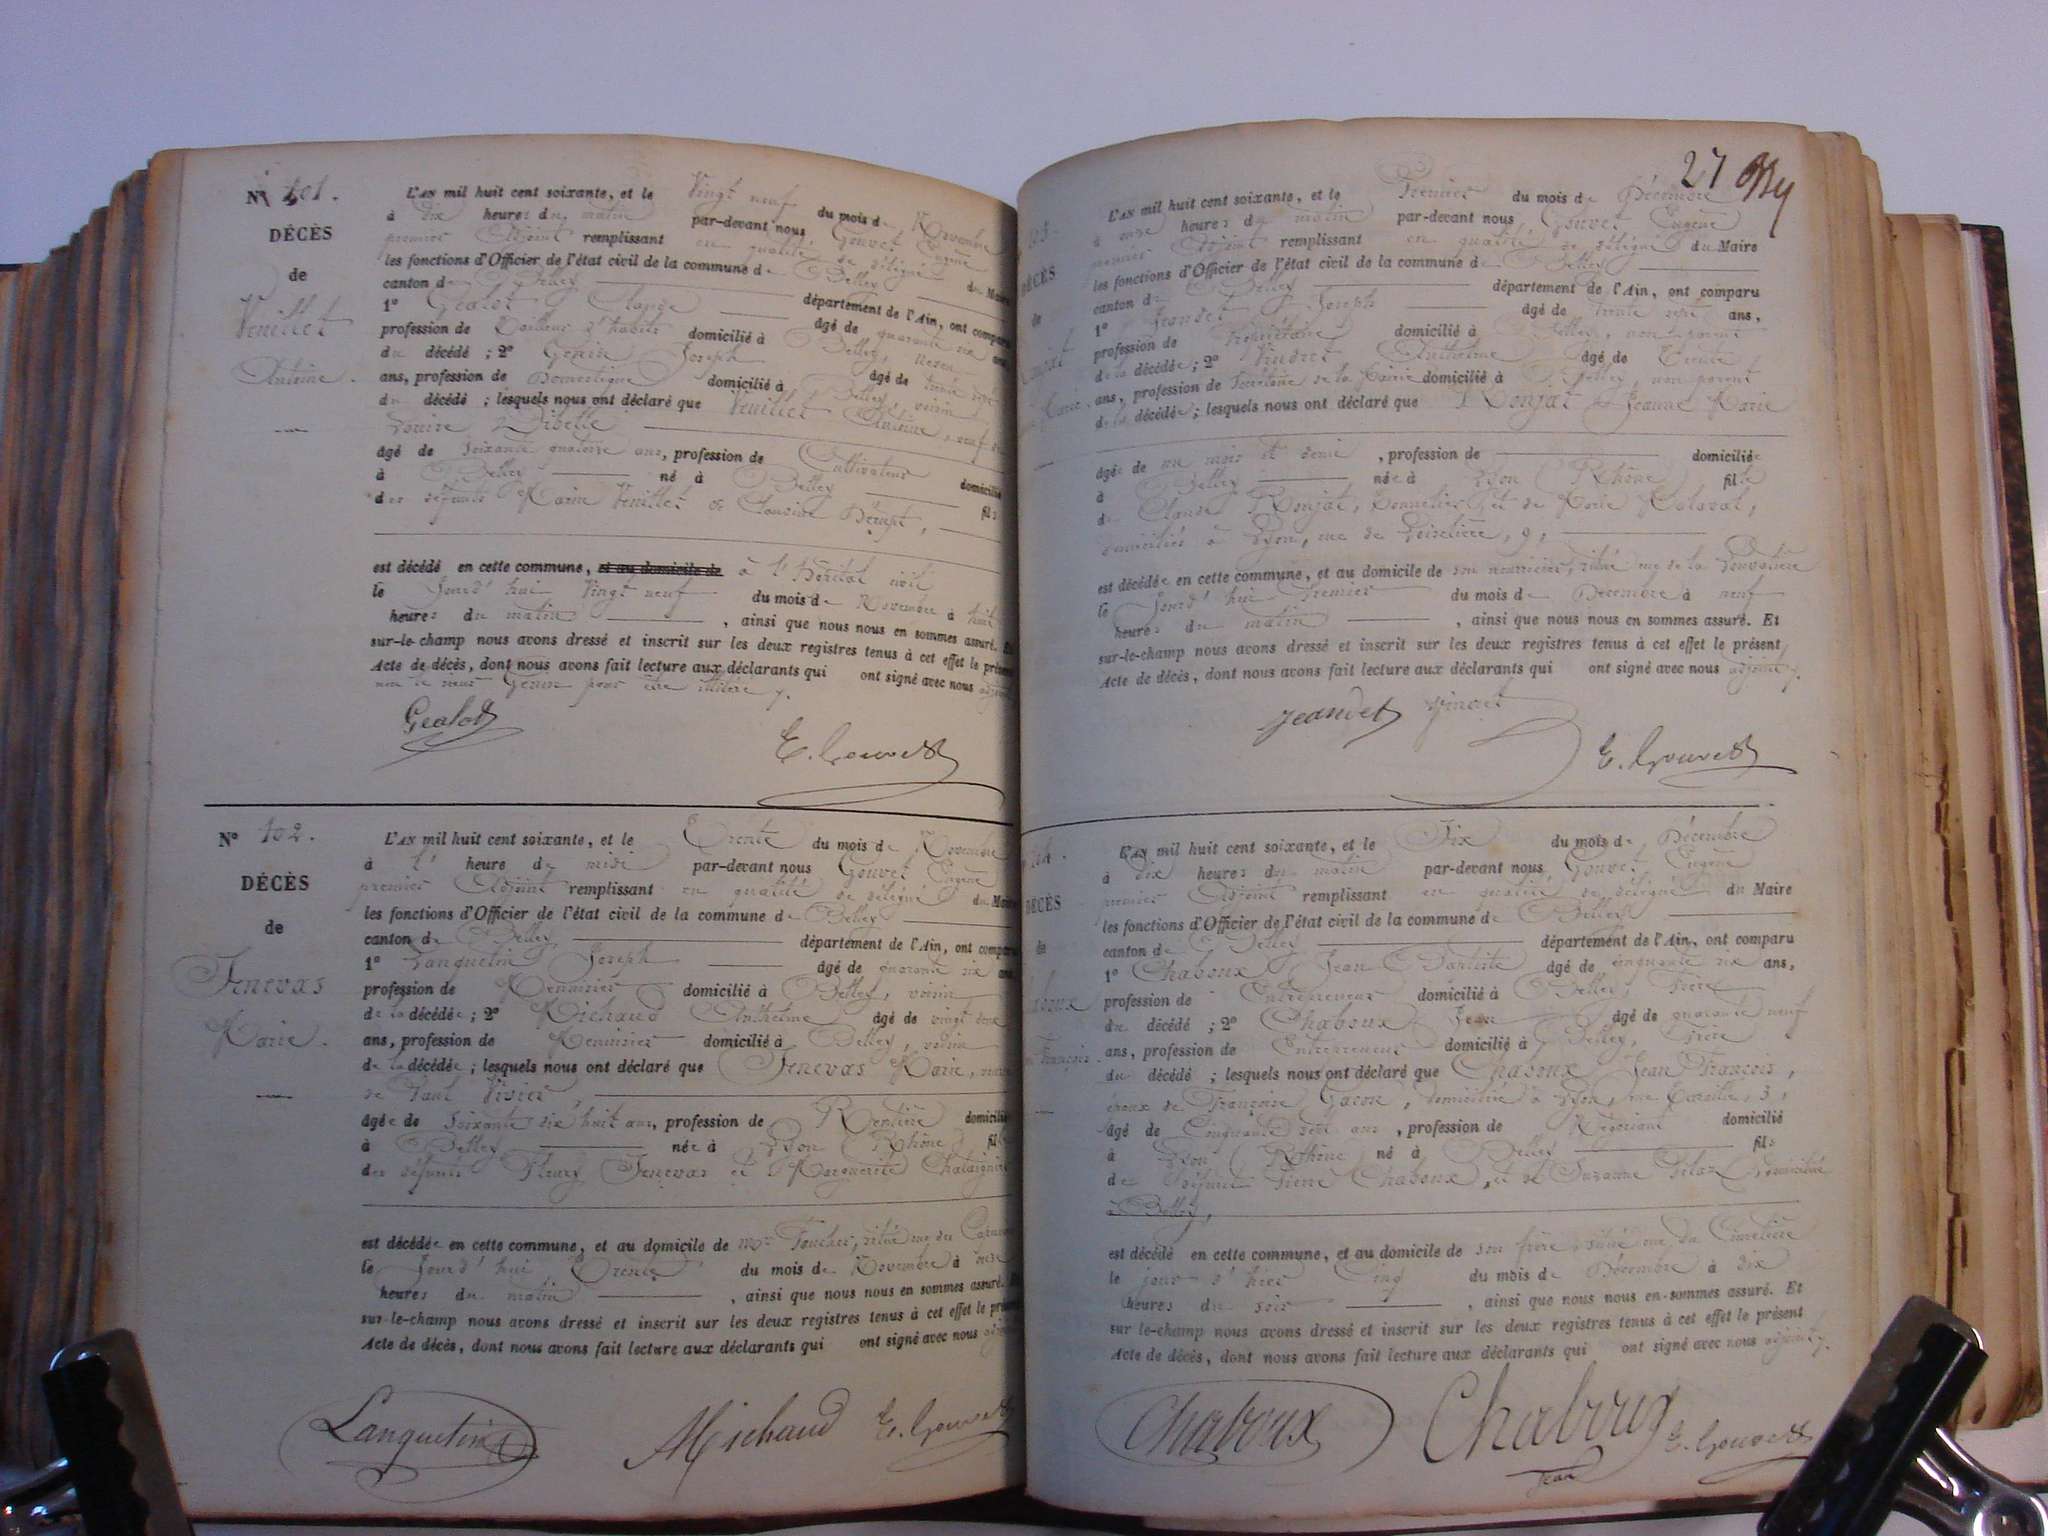 N° 101.
DÉCÈS
de
Veuillet
Antoine.
L'AN mil huit cent soixante, et le Vingt neuf du mois de Novembre
à dix heures du matin par-devant nous Gouvet Eugène
premier Adjoint remplissant en qualité de délégué du Maire
les fonctions d'Officier de l'état civil de la commune de Belley
canton de Belley département de l'Ain, ont comparu
1° Gealot Claude âgé de quarante six ans
profession de Tailleur d'habits domicilié à Belley, neveu
du décédé ; 2° Genin Joseph âgé de trente sept
ans, profession de Domestique domicilié à Belley, voisin
du décédé ; lesquels nous ont déclaré que Veuillet Antoine, veuf de
Louise Dibelle
âgé de soixante quatorze ans, profession de Cultivateur domicilié
à Belley né à Belley fils
des défunts Marin Veuillet et Claudine
est décédé en cette commune, et au domicile de à l'Hôpital civil
le Jourd'hui Vingt neuf du mois de Novembre à huit
heures du matin , ainsi que nous nous en sommes assuré. Et
sur-le-champ nous avons dressé et inscrit sur les deux registres tenus à cet effet le présent
Acte de décès, dont nous avons fait lecture aux déclarants qui ont signé avec nous adjoint
non le sieur Genin pour être illitéré
Gealot
E. Gouvet
N° 102.
DÉCÈS
de
Jenevas
Marie.
L'AN mil huit cent soixante, et le Trente du mois de Novembre
à l' heure de midi par-devant nous Gouvet Eugène
premier Adjoint remplissant en qualité de délégué du Maire
les fonctions d'Officier de l'état civil de la commune de Belley
canton de Belley département de l'Ain, ont comparu
1° Languetin Joseph âgé de quarante six ans
profession de Menuisier domicilié à Belley, voisin
de la décédée ; 2° Michaud Anthelme âgé de vingt deux
ans, profession de Menuisier domicilié à Belley, voisin
de la décédée ; lesquels nous ont déclaré que Jenevas Marie, veuve
de Paul Vivier,
âgée de soixante dix huit ans, profession de Rentière domiciliée
à Belley née à Lyon (Rhône) fille
des défunts Fleury Jenevas et Marguerite
est décédée en cette commune, et au domicile de Mr Foucher, situé rue des
le Jourd'hui Trente du mois de Novembre à onze
heures du matin , ainsi que nous nous en sommes assuré. Et
sur-le-champ nous avons dressé et inscrit sur les deux registres tenus à cet effet le présent
Acte de décès, dont nous avons fait lecture aux déclarants qui ont signé avec nous adjoint
Languetin
Michaud
E. Gouvet
27
DÉCÈS
de
L'AN mil huit cent soixante, et le Premier du mois de Décembre
à onze heures du matin par-devant nous Gouvet Eugène
premier Adjoint remplissant en qualité de délégué du Maire
les fonctions d'Officier de l'état civil de la commune de Belley
canton de Belley département de l'Ain, ont comparu
1° Jeandet Joseph âgé de trente sept ans,
profession de Propriétaire domicilié à Belley, non parent
de la décédée ; 2° Vindret Anthelme âgé de Trente
ans, profession de Secrétaire de la Mairie domicilié à Belley, non parent
de la décédée ; lesquels nous ont déclaré que Bonjat Jeanne Marie
âgée de un mois et demi , profession de domiciliée
à Belley née à Lyon (Rhône) fille
de Claude Bonjat, et de Marie
domiciliés à Lyon, rue de 9,
est décédée en cette commune, et au domicile de son nourricier, situé rue de la
le Jourd'hui Premier du mois de Décembre à neuf
heures du matin , ainsi que nous nous en sommes assuré. Et
sur-le-champ nous avons dressé et inscrit sur les deux registres tenus à cet effet le présent
Acte de décès, dont nous avons fait lecture aux déclarants qui ont signé avec nous adjoint
Jeandet
E. Gouvet
DÉCÈS
de
François.
L'AN mil huit cent soixante, et le Six du mois de Décembre
à dix heures du matin par-devant nous Gouvet Eugène
premier Adjoint remplissant en qualité de délégué du Maire
les fonctions d'Officier de l'état civil de la commune de Belley
canton de Belley département de l'Ain, ont comparu
1° Chaboux Jean Baptiste âgé de cinquante six ans,
profession de Entrepreneur domicilié à Belley, frère
du décédé ; 2° Chaboux Jean âgé de quarante neuf
ans, profession de Entrepreneur domicilié à Belley, frère
du décédé ; lesquels nous ont déclaré que Chaboux Jean François,
époux de Françoise Gacon, domiciliée à Lyon, rue 3,
âgé de Cinquante sept ans , profession de Négociant domicilié
à Lyon (Rhône) né à Belley fils
de défunt Pierre Chaboux, et de Suzanne domiciliée
à Belley,
est décédé en cette commune, et au domicile de son frère, situé rue du Cimetière
le jour d'hier Cinq du mois de Décembre à dix
heures du soir , ainsi que nous nous en sommes assuré. Et
sur le-champ nous avons dressé et inscrit sur les deux registres tenus à cet effet le présent
Acte de décès, dont nous avons fait lecture aux déclarants qui ont signé avec nous adjoint
Chaboux
Chaboux
Jean
E. Gouvet